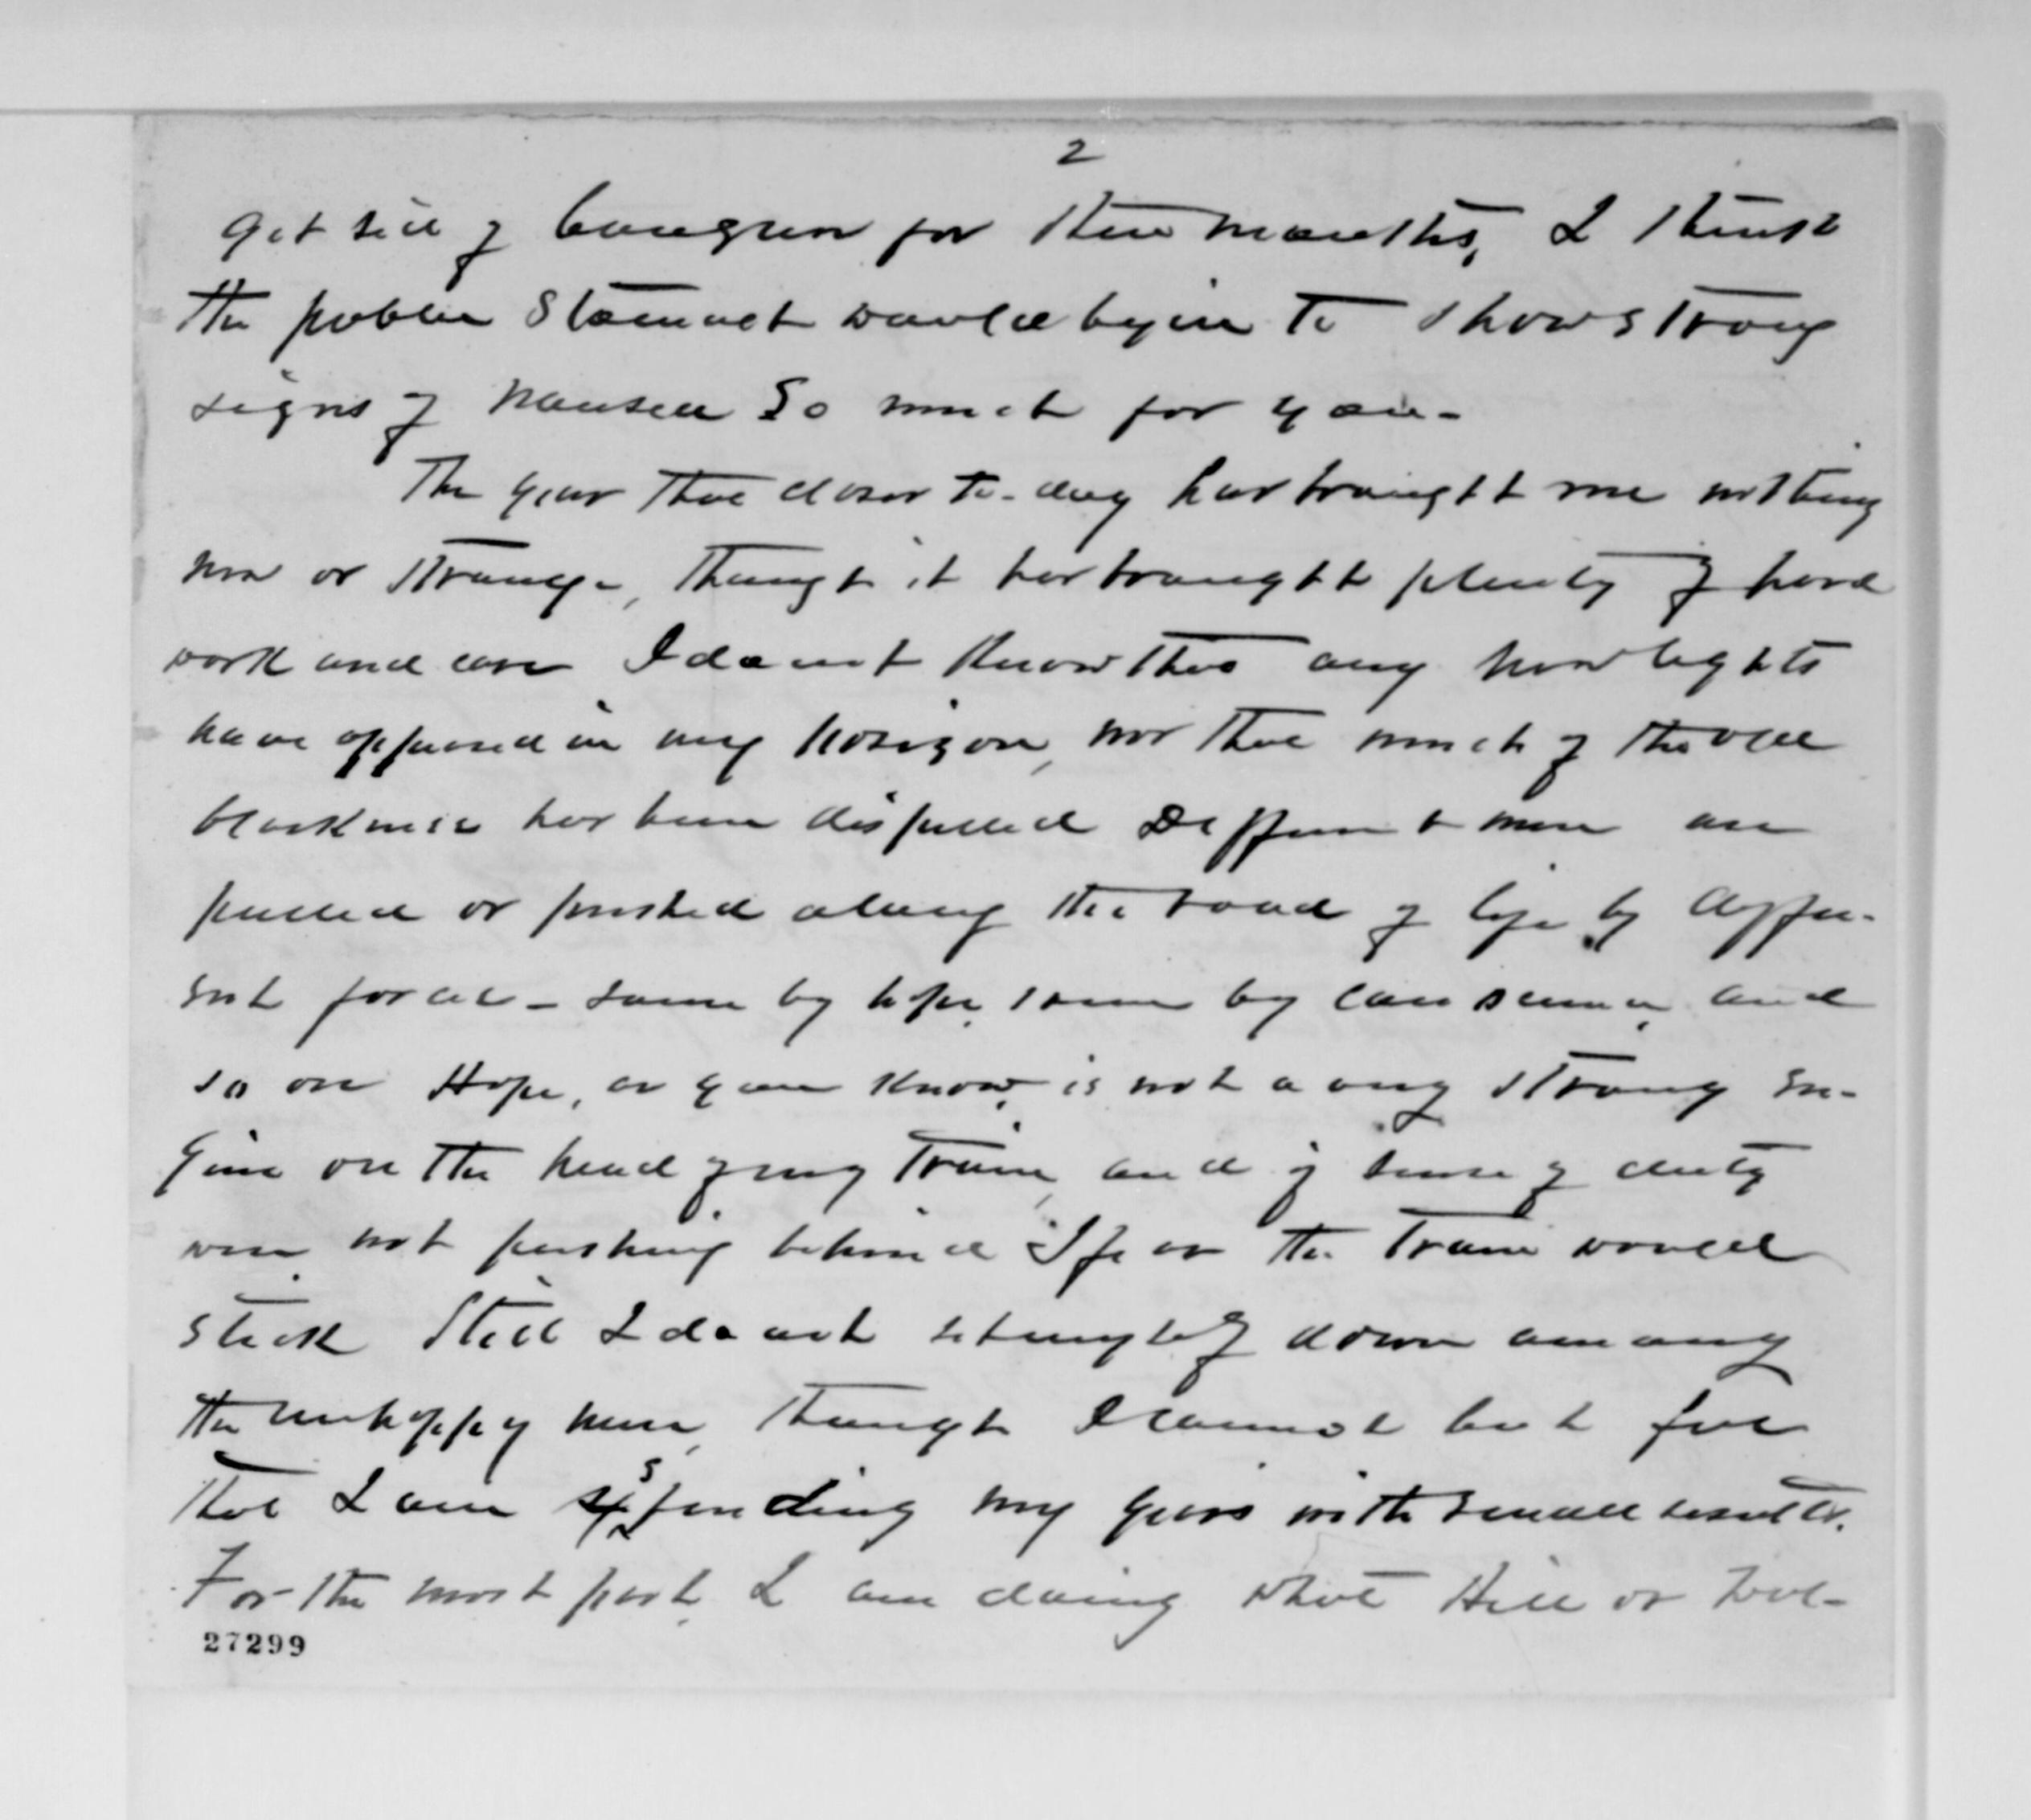 2
get rid of Congress for three months, I think
the public stomach would begin to show strong
signs of nausea So much for you -
The year that closes to-day has brought me nothing
new or strange, though it has brought plenty of hard
work and care I do not know that any new lights
have appeared in my horizon, nor that much of the old
blackness has been dispelled Different men are
pulled or pushed along the road of life by differ-
ent forces - some by hope, some by conscience, and
so on Hope, as you know, is not a very strong en-
gine on the head of my train, and if sense of duty
were not pushing behind I fear the train would
stick Still I do not set myself down among
the unhappy men, though I cannot but feel
that I am spending my years with small results.
For the most part, I am doing what Hill or Wol-
27299